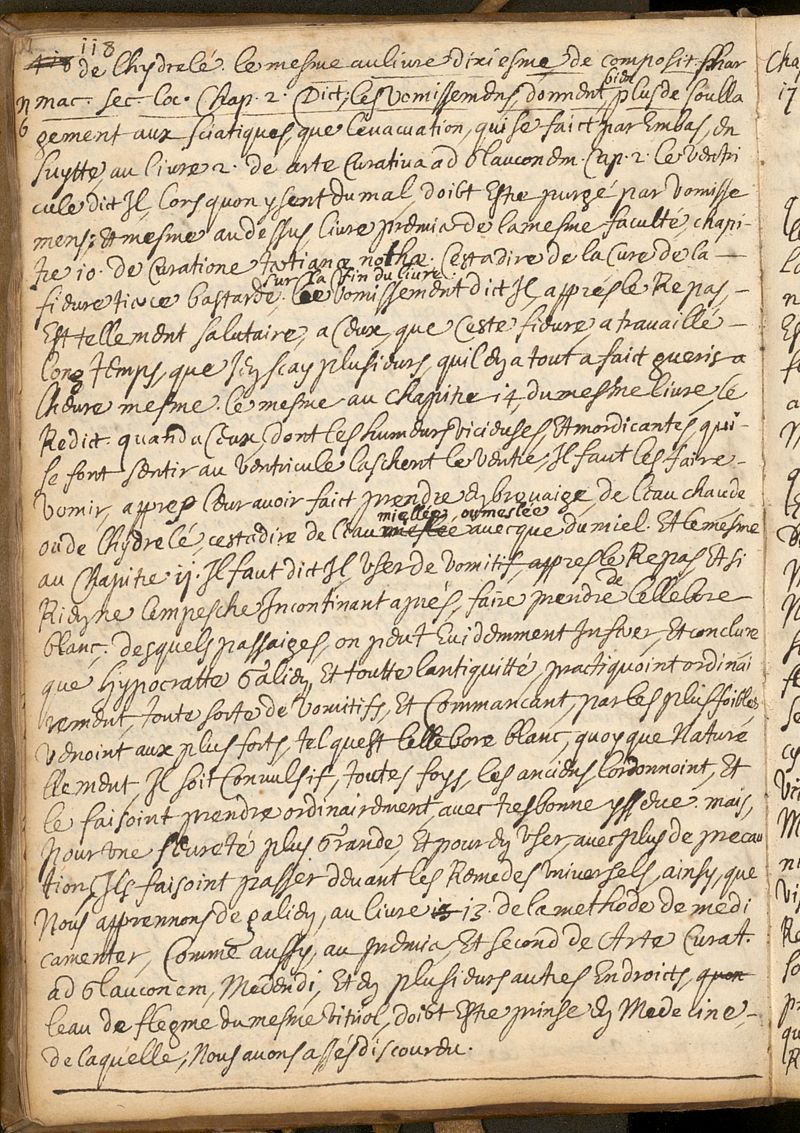 118
118 de lhydrelé. le mesme au livre dixiesme de composit. phar
mac. sec. loc. Chap. 2. Dict, les vomissemens, donnent bien plus de soulla
gement aux sciatiques, que levacuation, qui se faict par Embas, en
suytte au livre 2. de arte Curativa ad Glauconem. Cap. 2. le ventri
cule dict Il, lors quon y sent du mal, doibt Estre purgé par vomisse
mens; Et mesme au dessus, livre premier de la mesme faculté chapi-
tre 10. de Curatione tertianæ nothæ. Cest a dire de la Cure de la —
sur la fin du livre.
fieure tierce bastarde. Le vomissement dict Il, appres le Repas,
Est tellement salutaire, a Ceux, que Ceste fieure a travaillé —
long temps, que Jen scay plusieurs, quil en a tout a faict gueris a
lheure mesme. le mesme au Chapitre 14, du mesme livre, le
Redict. quand a Ceux, dont les humeurs vicieuses, Et mordicantes qui-
se font sentir au ventricule laschent le ventre, Il faut les faire -
vomir, appres leur avoir faict prendre en brevaige, de leau chaude
miellée, ou meslée
ou de lhydrelé, cest a dire de leau meslée avecque du miel. Et le mesme
au Chapitre 11. Il faut dict Il, user de vomitif, appres le Repas, Et si
de
Rien ne lempesche Incontinant apres, faire prendre lellebore
blanc. desquels passaiges, on peut Evidemment Inferer, Et conclure
que Hypocratte Galien, Et toutte lantiquitté, practiquoint ordinai
rement, toute sorte de vomitifs, Et Commancant, par les plus foibles
venoint aux plus forts, tel quest lellebore blanc, quoy que Nature
llement, Il soit Convulsif, toutes foys, les anciens lordonnoint, Et
le faisoint prendre ordinairement, avec tres bonne ysseue. mais,
pour une seureté plus Grande, Et pour en user, avec plus de precau
tion, Ils faisoint passer devant les Remedes universels, ainsy, que
Nous apprennons de galien, au livre 13. de la methode de medi
camenter, Comme aussy, au premier, Et second de Arte Curat.
ad Glauconem, Medendi, Et en plusieurs autres Endroicts, quon
leau de flegme du mesme vitriol, doibt Estre prinse en Medecine -
de laquelle, Nous avons assés discouru.